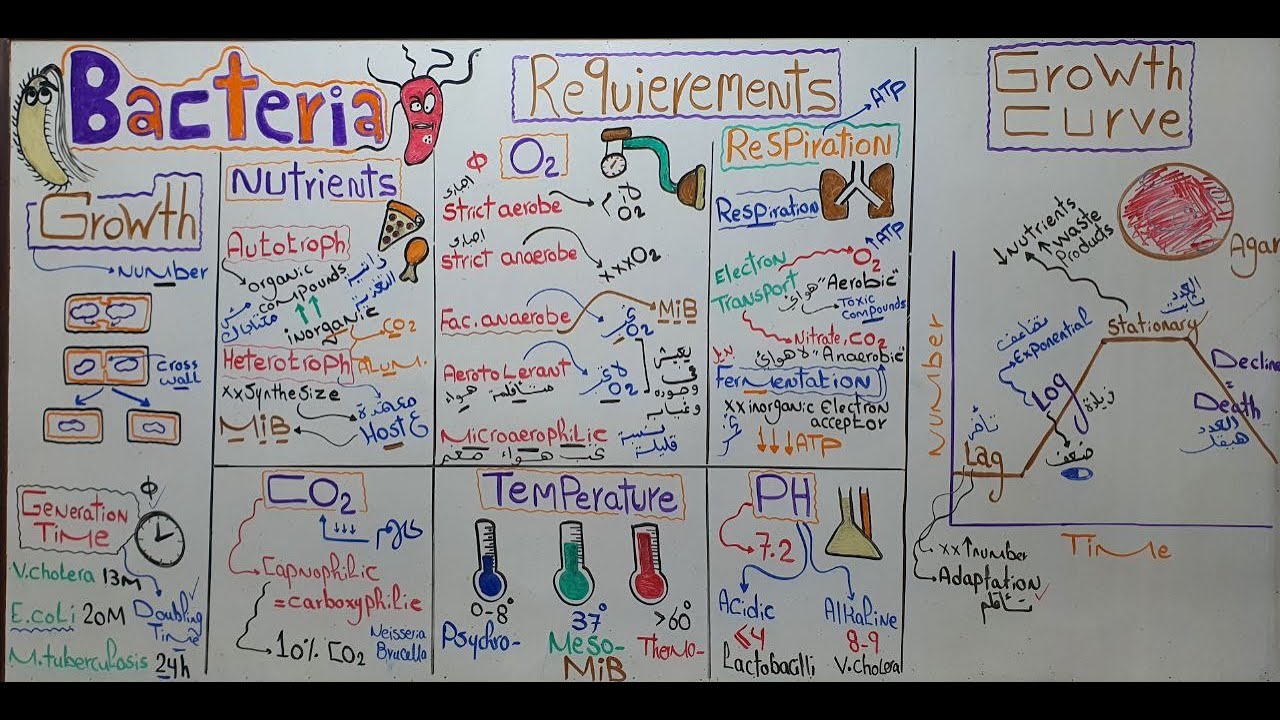 Bacteria
Requierements
Growth
Curve
Growth
Number
cross
wall
Generation
Time
V.cholera 13M
E.coli 20M
Doubling
Time
M.tuberculosis 24h
Nutrients
Autotroph
organic
compounds
inorganic
ذاتية
التغذية
CO2
Heterotroph
Alum.
xx Synthesize
معقدة
MiB
Host
CO2
لازم
Capnophilic
=carboxyphilic
10% CO2
Neisseria
Brucella
O2
اجباري
Strict aerobe
O2
اجباري
Strict anaerobe
xxx O2
Fac. anaerobe
MiB
O2
Aerotolerant
O2
هواء
يعيش
في
وجوده
وغياب
Microaerophilic
نسبة
قليلة
Temperature
0-8°
37°
>60°
Psychro-
Meso-
Thermo-
MiB
Respiration
ATP
Respiration
ATP
Electron
Transport
O2
هوائي "Aerobic"
Toxic
Compounds
Nitrate, CO2
لا هوائي "Anaerobic"
Fermentation
xx inorganic Electron
acceptor
ATP
PH
7.2
Acidic
≤4
Lactobacilli
Alkaline
8-9
V.cholera
Agar
Nutrients
waste
Products
العدد
ثابت
Stationary
تضاعف
Exponential
Log
زيادة
ضعف
تأخر
Lag
Decline
=
Death
العدد
هيقل
Number
Time
xx↑number
Adaptation
تأقلم